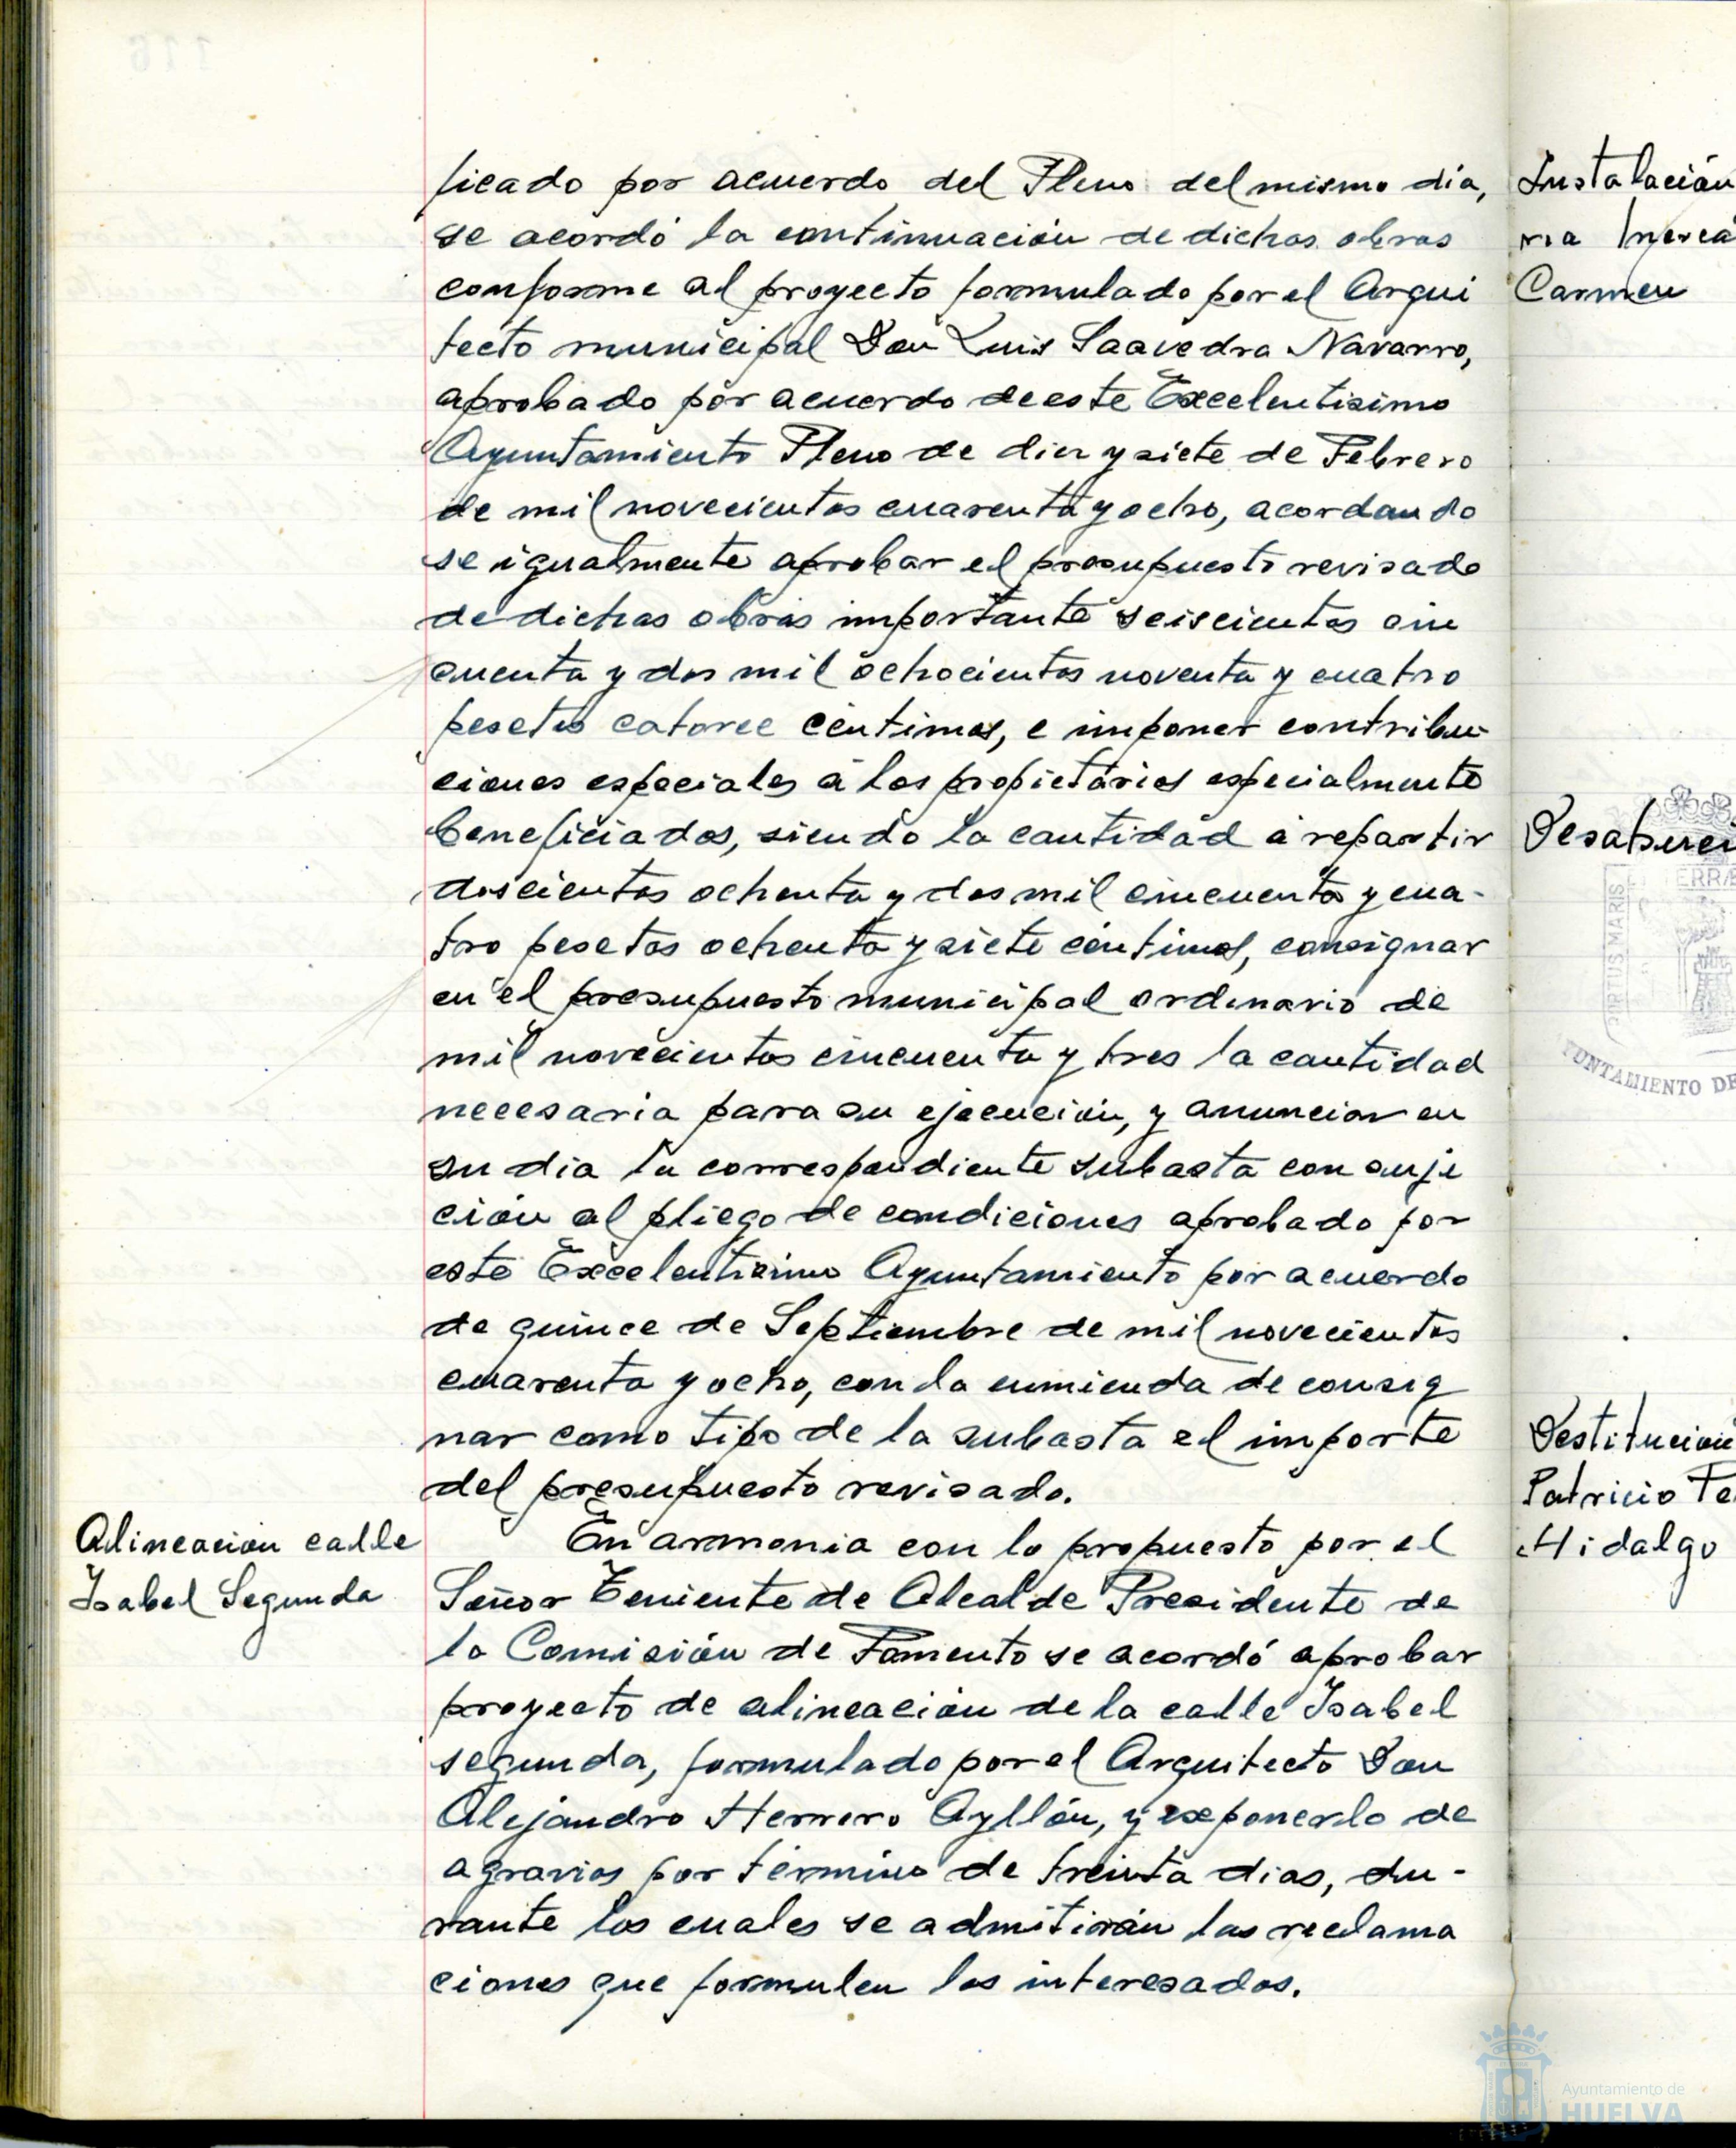 ficado por acuerdo del Pleno del mismo dia,
se acordó la continuación de dichas obras
conforme al proyecto formulado por el Arqui
tecto municipal Don Luis Saavedra Navarro,
aprobado por acuerdo de este Excelentisimo
Ayuntamiento Pleno de diez y siete de Febrero
de mil novecientos cuarenta y ocho, acordando
se igualmente aprobar el presupuesto revisado
de dichas obras importante seiscientas cin
cuenta y dos mil ochocientas noventa y cuatro
pesetas catorce céntimos, e imponer contribu-
ciones especiales a los propietarios especialmente
beneficiados, siendo la cantidad a repartir
doscientas ochenta y dos mil cincuenta y cua-
tro pesetas ochenta y siete céntimos, consignar
en el presupuesto municipal ordinario de
mil novecientos cincuenta y tres la cantidad
necesaria para su ejecución, y anunciar en
su dia la correspondiente subasta con suje
ción al pliego de condiciones aprobado por
este Excelentisimo Ayuntamiento por acuerdo
de quince de Septiembre de mil novecientos
cuarenta y ocho, con la enmienda de consig
nar como tipo de la subasta el importe
del presupuesto revisado.
Alineacion calle
Isabel Segunda
En armonia con lo propuesto por el
Señor Teniente de Alcalde Presidente de
la Comisión de Fomento se acordó aprobar
proyecto de alineación de la calle Isabel
segunda, formulado por el Arquitecto Don
Alejandro Herrero Ayllón, y exponerlo de
agravios por término de treinta dias, du-
rante los cuales se admitirán las reclama
ciones que formulen los interesados.
Instalación
ria
Carmen
PORTUS MARIS
UNTAMIENTO DE
Destitución
Patricio Fe
Hidalgo
Ayuntamiento de
HUELVA